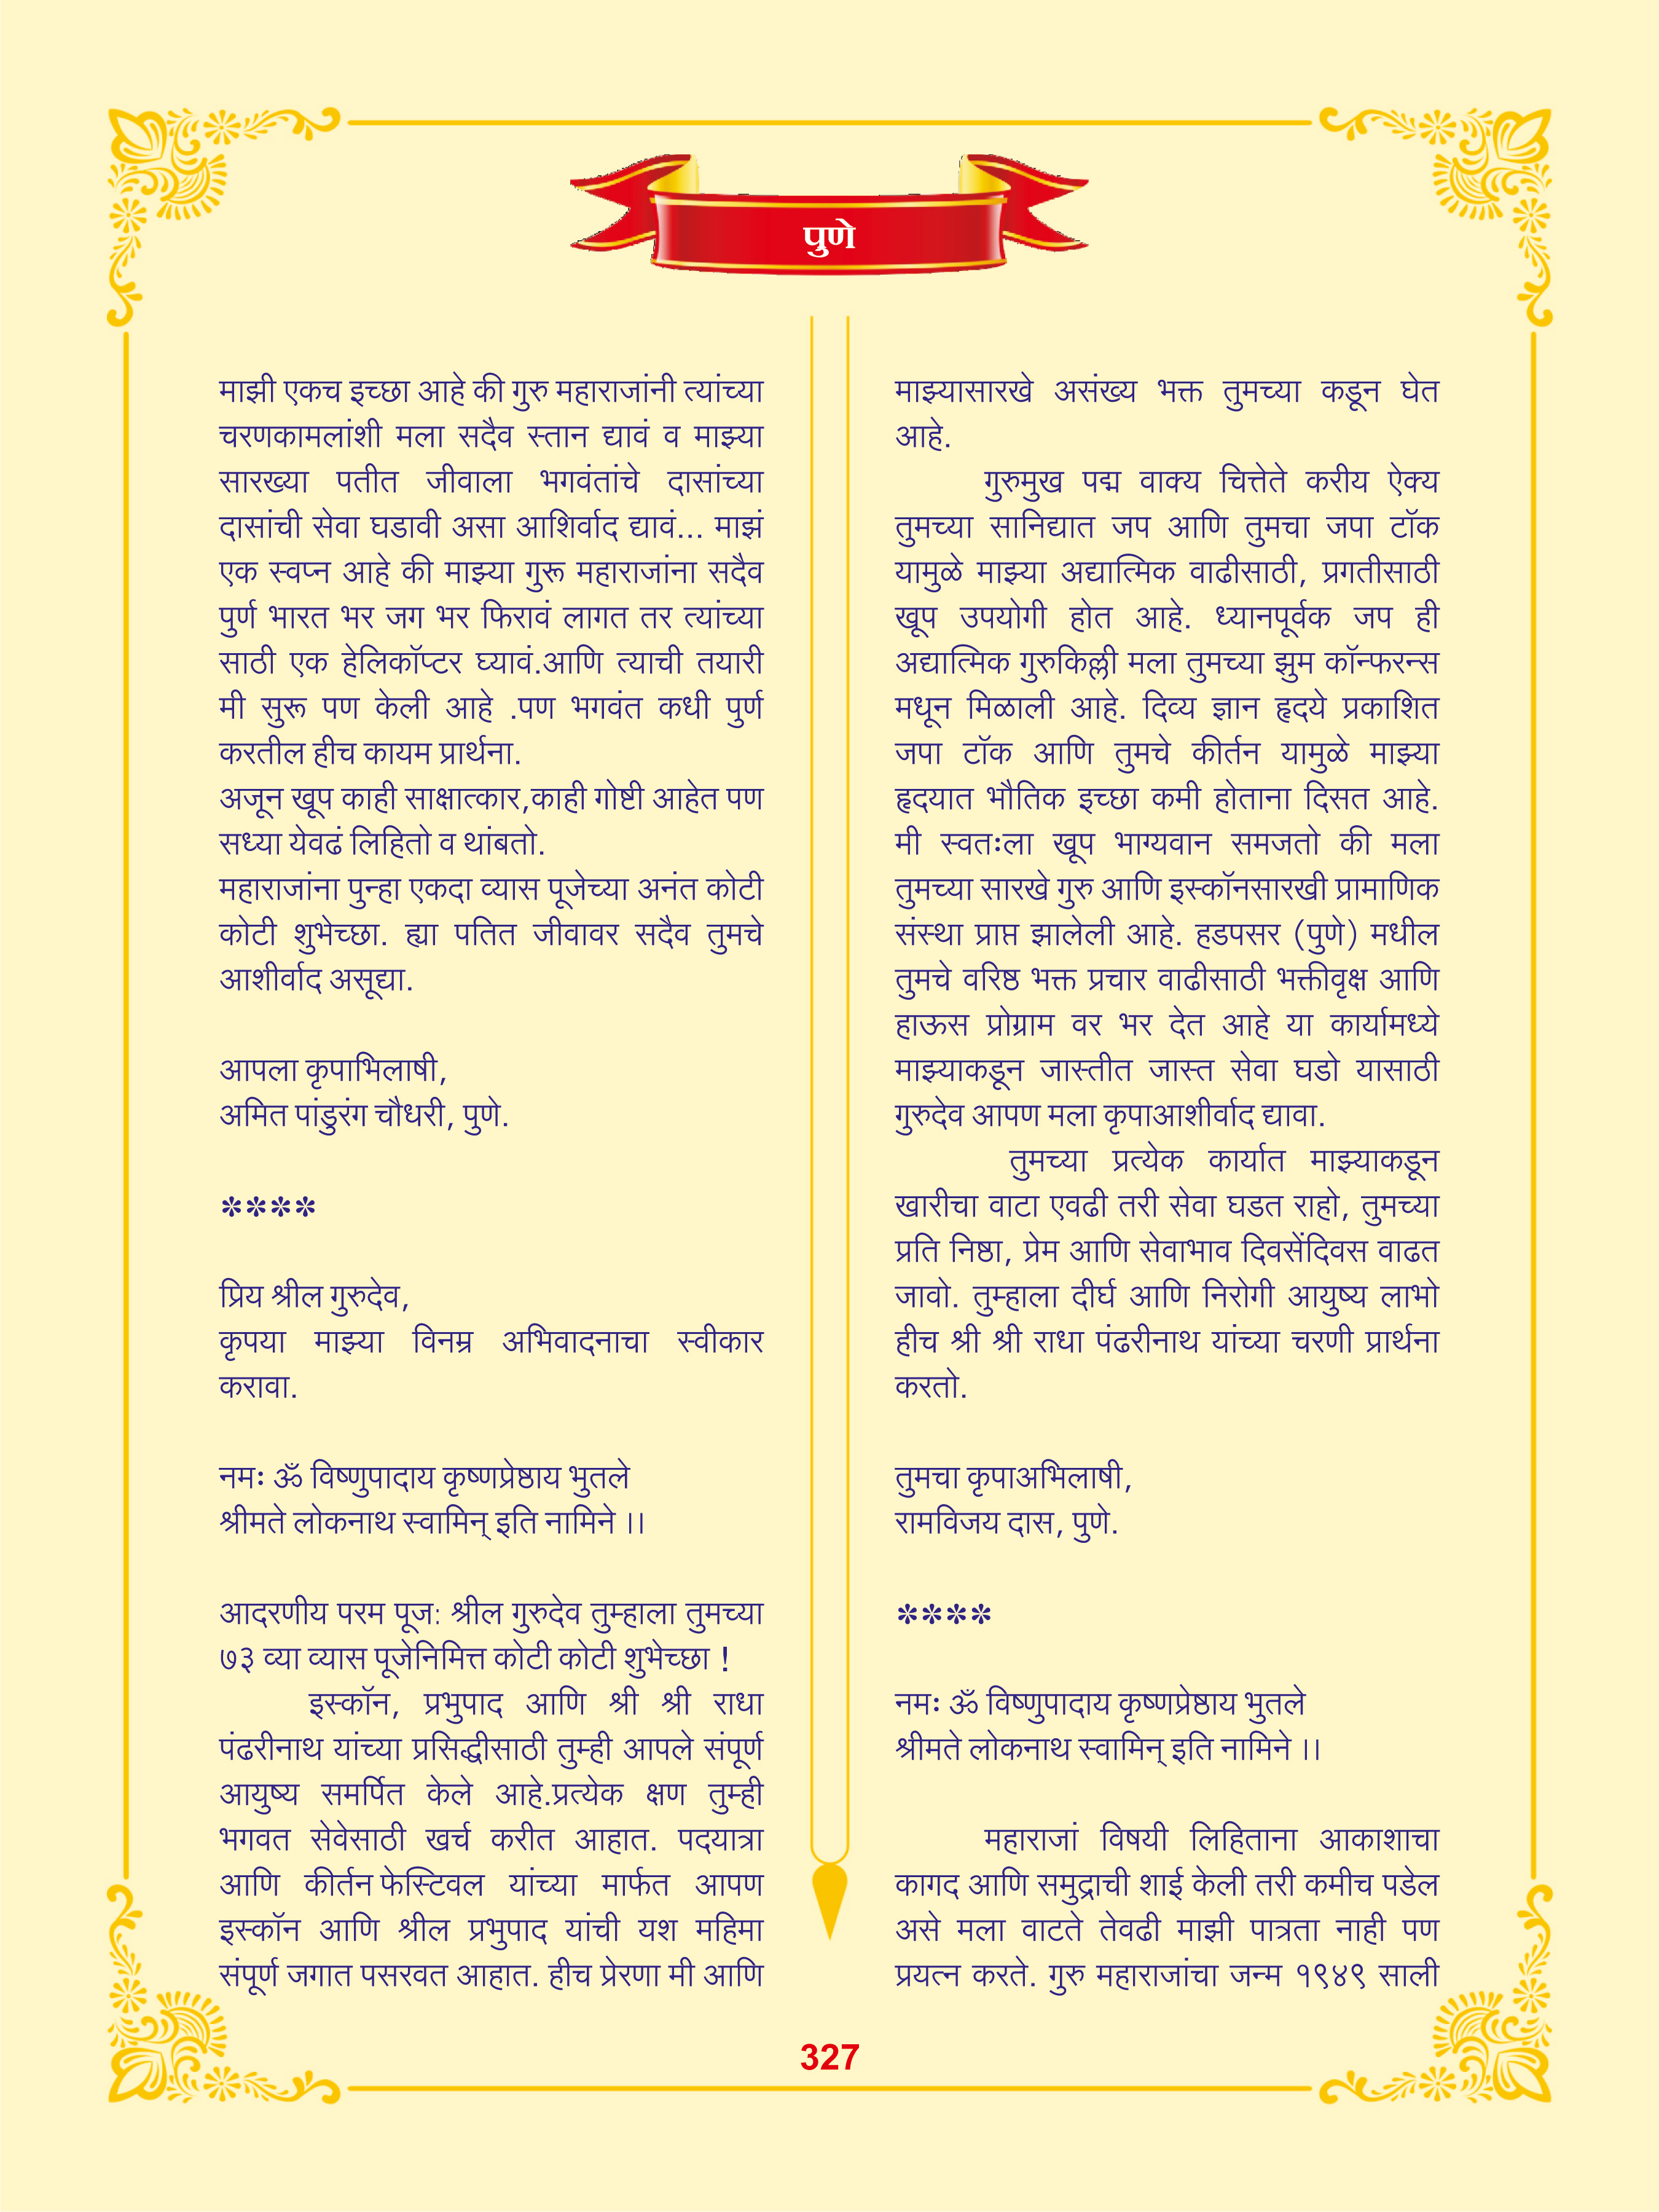 पुणे
माझी एकच इच्छा आहे की गुरु महाराजांनी त्यांच्या
चरणकामलांशी मला सदैव स्तान द्यावं व माझ्या
सारख्या पतीत जीवाला भगवंतांचे दासांच्या
दासांची सेवा घडावी असा आशिर्वाद द्यावं... माझं
एक स्वप्न आहे की माझ्या गुरू महाराजांना सदैव
पुर्ण भारत भर जग भर फिरावं लागत तर त्यांच्या
साठी एक हेलिकॉप्टर घ्यावं.आणि त्याची तयारी
मी सुरू पण केली आहे .पण भगवंत कधी पुर्ण
करतील हीच कायम प्रार्थना.
अजून खूप काही साक्षात्कार,काही गोष्टी आहेत पण
सध्या येवढं लिहितो व थांबतो.
महाराजांना पुन्हा एकदा व्यास पूजेच्या अनंत कोटी
कोटी शुभेच्छा. ह्या पतित जीवावर सदैव तुमचे
आशीर्वाद असूद्या.
आपला कृपाभिलाषी,
अमित पांडुरंग चौधरी, पुणे.
****
प्रिय श्रील गुरुदेव,
कृपया माझ्या विनम्र अभिवादनाचा स्वीकार
करावा.
नमः ॐ विष्णुपादाय कृष्णप्रेष्ठाय भुतले
श्रीमते लोकनाथ स्वामिन् इति नामिने ।।
आदरणीय परम पूज: श्रील गुरुदेव तुम्हाला तुमच्या
७३ व्या व्यास पूजेनिमित्त कोटी कोटी शुभेच्छा !
इस्कॉन, प्रभुपाद आणि श्री श्री राधा
पंढरीनाथ यांच्या प्रसिद्धीसाठी तुम्ही आपले संपूर्ण
आयुष्य समर्पित केले आहे.प्रत्येक क्षण तुम्ही
भगवत सेवेसाठी खर्च करीत आहात. पदयात्रा
आणि कीर्तन फेस्टिवल यांच्या मार्फत आपण
इस्कॉन आणि श्रील प्रभुपाद यांची यश महिमा
संपूर्ण जगात पसरवत आहात. हीच प्रेरणा मी आणि
माझ्यासारखे असंख्य भक्त तुमच्या कडून घेत
आहे.
गुरुमुख पद्म वाक्य चित्तेते करीय ऐक्य
तुमच्या सानिद्यात जप आणि तुमचा जपा टॉक
यामुळे माझ्या अद्यात्मिक वाढीसाठी, प्रगतीसाठी
खूप उपयोगी होत आहे. ध्यानपूर्वक जप ही
अद्यात्मिक गुरुकिल्ली मला तुमच्या झुम कॉन्फरन्स
मधून मिळाली आहे. दिव्य ज्ञान हृदये प्रकाशित
जपा टॉक आणि तुमचे कीर्तन यामुळे माझ्या
हृदयात भौतिक इच्छा कमी होताना दिसत आहे.
मी स्वतःला खूप भाग्यवान समजतो की मला
तुमच्या सारखे गुरु आणि इस्कॉनसारखी प्रामाणिक
संस्था प्राप्त झालेली आहे. हडपसर (पुणे) मधील
तुमचे वरिष्ठ भक्त प्रचार वाढीसाठी भक्तीवृक्ष आणि
हाऊस प्रोग्राम वर भर देत आहे या कार्यामध्ये
माझ्याकडून जास्तीत जास्त सेवा घडो यासाठी
गुरुदेव आपण मला कृपाआशीर्वाद द्यावा.
तुमच्या प्रत्येक कार्यात माझ्याकडून
खारीचा वाटा एवढी तरी सेवा घडत राहो, तुमच्या
प्रति निष्ठा, प्रेम आणि सेवाभाव दिवसेंदिवस वाढत
जावो. तुम्हाला दीर्घ आणि निरोगी आयुष्य लाभो
हीच श्री श्री राधा पंढरीनाथ यांच्या चरणी प्रार्थना
करतो.
तुमचा कृपाअभिलाषी,
रामविजय दास, पुणे.
****
नमः ॐ विष्णुपादाय कृष्णप्रेष्ठाय भुतले
श्रीमते लोकनाथ स्वामिन् इति नामिने ।।
महाराजां विषयी लिहिताना आकाशाचा
कागद आणि समुद्राची शाई केली तरी कमीच पडेल
असे मला वाटते तेवढी माझी पात्रता नाही पण
प्रयत्न करते. गुरु महाराजांचा जन्म १९४९ साली
327